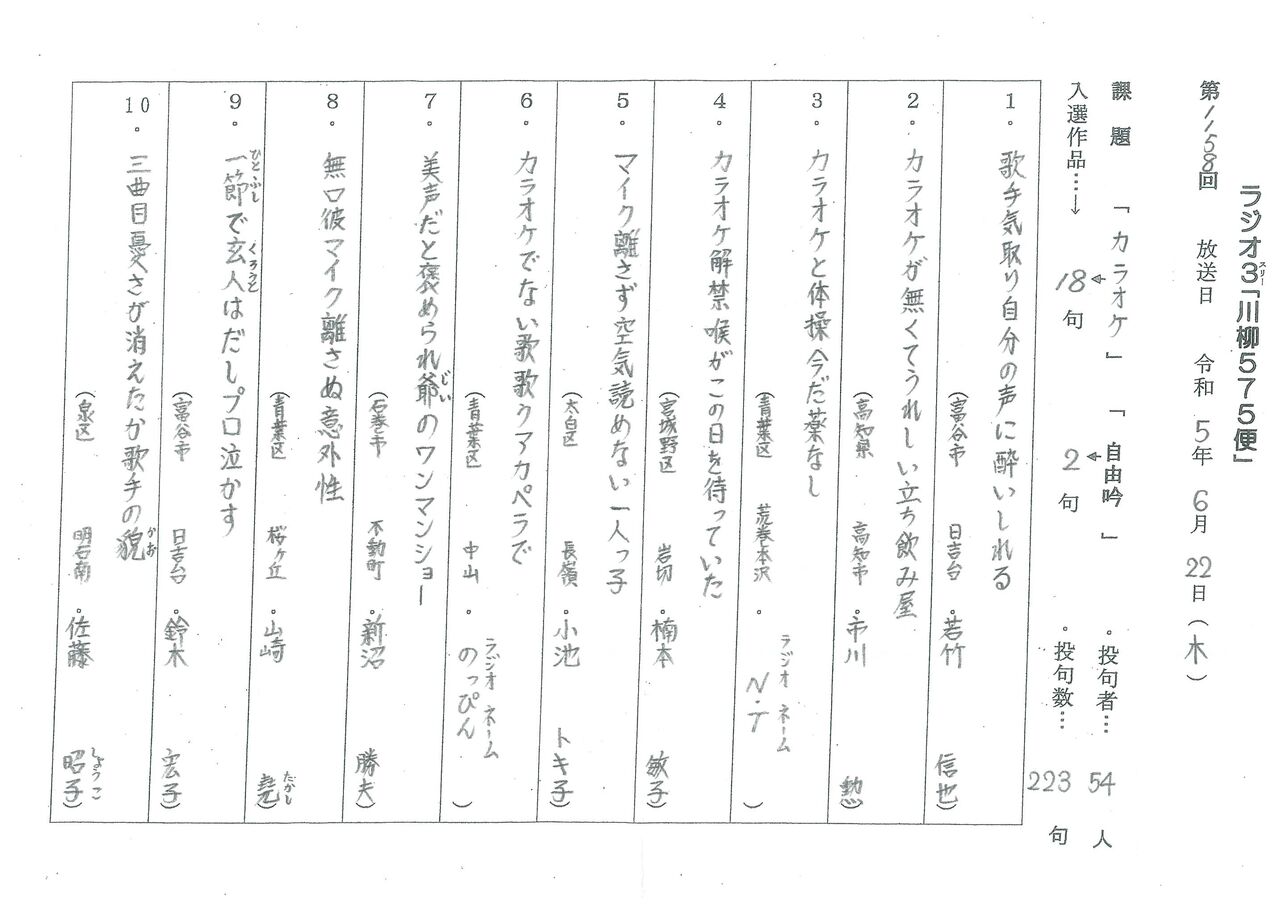 ラジオ3「川柳575便」
スリー
第1158回 放送日 令和 5年 6月 22日(木)
課題 「カラオケ」 「自由吟」 。投句者… 54 人
入選作品…→ 18 句 2 句 。投句数… 223 句
1。歌手気取り自分の声に酔いしれる
(富谷市 日吉台。若竹 信也)
2。カラオケが無くてうれしい立ち飲み屋
(高知県 高知市。市川 勲)
3。カラオケと体操今だ薬なし
(青葉区 荒巻本沢。ラジオネーム N・T )
4。カラオケ解禁喉がこの日を待っていた
(宮城野区 岩切。楠本 敏子)
5。マイク離さず空気読めない一人っ子
(太白区 長嶺。小池 トキ子)
6。カラオケでない歌歌クアカペラで
(青葉区 中山。ラジオネーム のっぴん )
7。美声だと褒められ爺のワンマンショー
じい
(石巻市 不動町。新沼 勝夫)
8。無口彼マイク離さぬ意外性
(青葉区 桜ヶ丘。山崎 堯)
たかし
9。一節で玄人はだしプロ泣かす
ひとふし くろうと
(富谷市 日吉台。鈴木 宏子)
10。三曲目憂さが消えたか歌手の貌
かお
(泉区 明石南。佐藤 昭子)
しょうこ